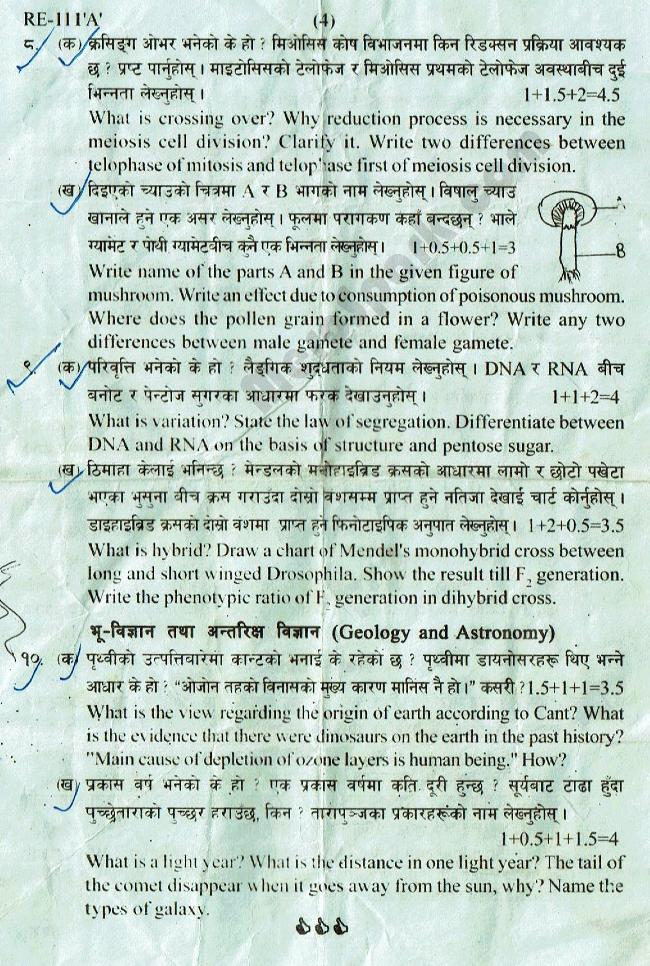 RE-111'A' (4)
८. (क) क्रसिङ्ग ओभर भनेको के हो ? मिओसिस कोष विभाजनमा किन रिडक्सन प्रक्रिया आवश्यक
छ ? प्रष्ट पार्नुहोस् । माइटोसिसको टेलोफेज र मिओसिस प्रथमको टेलोफेज अवस्थाबीच दुई
भिन्नता लेख्नुहोस् । 1+1.5+2=4.5
What is crossing over? Why reduction process is necessary in the
meiosis cell division? Clarify it. Write two differences between
telophase of mitosis and telophase first of meiosis cell division.
(ख) दिइएको च्याउको चित्रमा A र B भागको नाम लेख्नुहोस् । विषालु च्याउ
खानाले हुने एक असर लेख्नुहोस् । फूलमा परागकण कहाँ बन्दछन् ? भाले
ग्यामेट र पोथी ग्यामेटबीच कुनै एक भिन्नता लेख्नुहोस् । 1+0.5+0.5+1=3
B
Write name of the parts A and B in the given figure of
mushroom. Write an effect due to consumption of poisonous mushroom.
Where does the pollen grain formed in a flower? Write any two
differences between male gamete and female gamete.
९. (क) परिवृत्ति भनेको के हो ? लैङ्गिक शुद्धताको नियम लेख्नुहोस् । DNA र RNA बीच
बनोट र पेन्टोज सुगरका आधारमा फरक देखाउनुहोस् । 1+1+2=4
What is variation? State the law of segregation. Differentiate between
DNA and RNA on the basis of structure and pentose sugar.
(ख) ठिमाहा केलाई भनिन्छ ? मेन्डलको मनोहाइब्रिड क्रसको आधारमा लामो र छोटो पखेटा
भएका भुसुना बीच क्रस गराउँदा दोस्रो वंशसम्म प्राप्त हुने नतिजा देखाई चार्ट कोर्नुहोस् ।
डाइहाइब्रिड क्रसको दोस्रो वंशमा प्राप्त हुने फिनोटाइपिक अनुपात लेख्नुहोस् । 1+2+0.5=3.5
What is hybrid? Draw a chart of Mendel's monohybrid cross between
long and short winged Drosophila. Show the result till F₂ generation.
Write the phenotypic ratio of F₂ generation in dihybrid cross.
भू-विज्ञान तथा अन्तरिक्ष विज्ञान (Geology and Astronomy)
१०. (क) पृथ्वीको उत्पत्तिबारेमा कान्टको भनाई के रहेको छ ? पृथ्वीमा डायनोसरहरू थिए भन्ने
आधार के हो ? "ओजोन तहको विनासको मुख्य कारण मानिस नै हो।" कसरी ? 1.5+1+1=3.5
What is the view regarding the origin of earth according to Cant? What
is the evidence that there were dinosaurs on the earth in the past history?
"Main cause of depletion of ozone layers is human being." How?
(ख) प्रकास वर्ष भनेको के हो ? एक प्रकास वर्षमा कति दूरी हुन्छ ? सूर्यबाट टाढा हुँदा
पुच्छ्रेताराको पुच्छर हराउँछ, किन ? तारापुञ्जका प्रकारहरूको नाम लेख्नुहोस् ।
1+0.5+1+1.5=4
What is a light year? What is the distance in one light year? The tail of
the comet disappear when it goes away from the sun, why? Name the
types of galaxy.